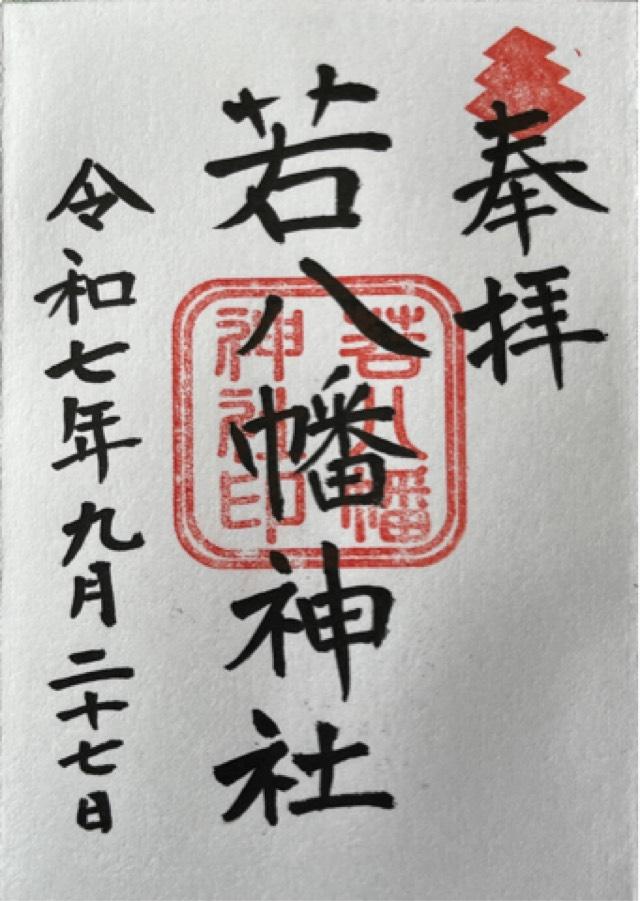 奉拝
若八幡神社
若八幡
神社印
令和七年九月二十七日